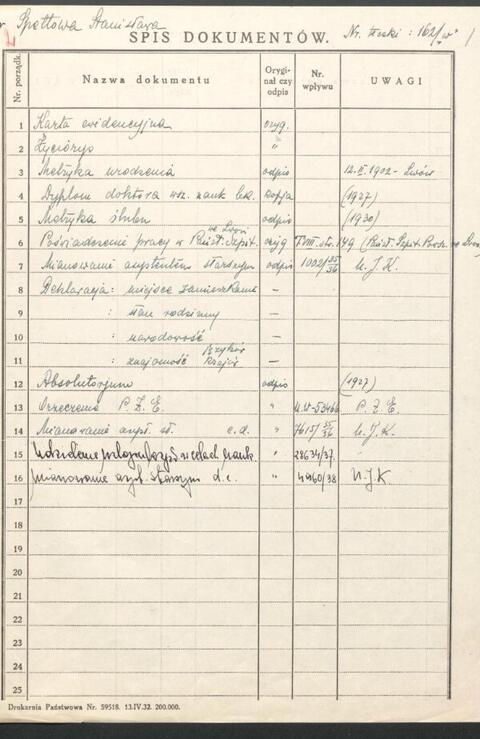 Spettowa Stanisława
Nr. teczki: 162/w
SPIS DOKUMENTÓW.
Nr. porządk.
Nazwa dokumentu
Orygi-
nał czy
odpis
Nr.
wpływu
UWAGI
1 Karta ewidencyjna oryg.
2 Życiorys "
3 Metryka urodzenia odpis 12.II.1902 - Lwów
4 Dyplom doktora wsz. nauk lek. kopja (1927)
5 Metryka ślubu odpis (1930)
6 Poświadczenie pracy w Państ. Szpit. we Lwowie oryg str. 149 (Państ. Szpit. Powsz. we Lwow
7 Mianowanie asystentem starszym odpis 1002/35/36 U.J.K.
8 Deklaracja: miejsce zamieszkania —
9 : stan rodzinny —
10 : narodowość —
11 : znajomość języków krajów —
12 Absolutorjum odpis (1927)
13 Orzeczenie P.Z.E. " 53466 P.Z.E.
14 Mianowanie asyst. st. c.d. " 7615/35/36 U.J.K.
15 Udzielenie w celach nauk. " 28634/37.
16 Mianowanie asyst. starszym d.c. " 4960/38 U.J.K.
17
18
19
20
21
22
23
24
25
Drukarnia Państwowa Nr. 59518. 13.IV.32. 200.000.